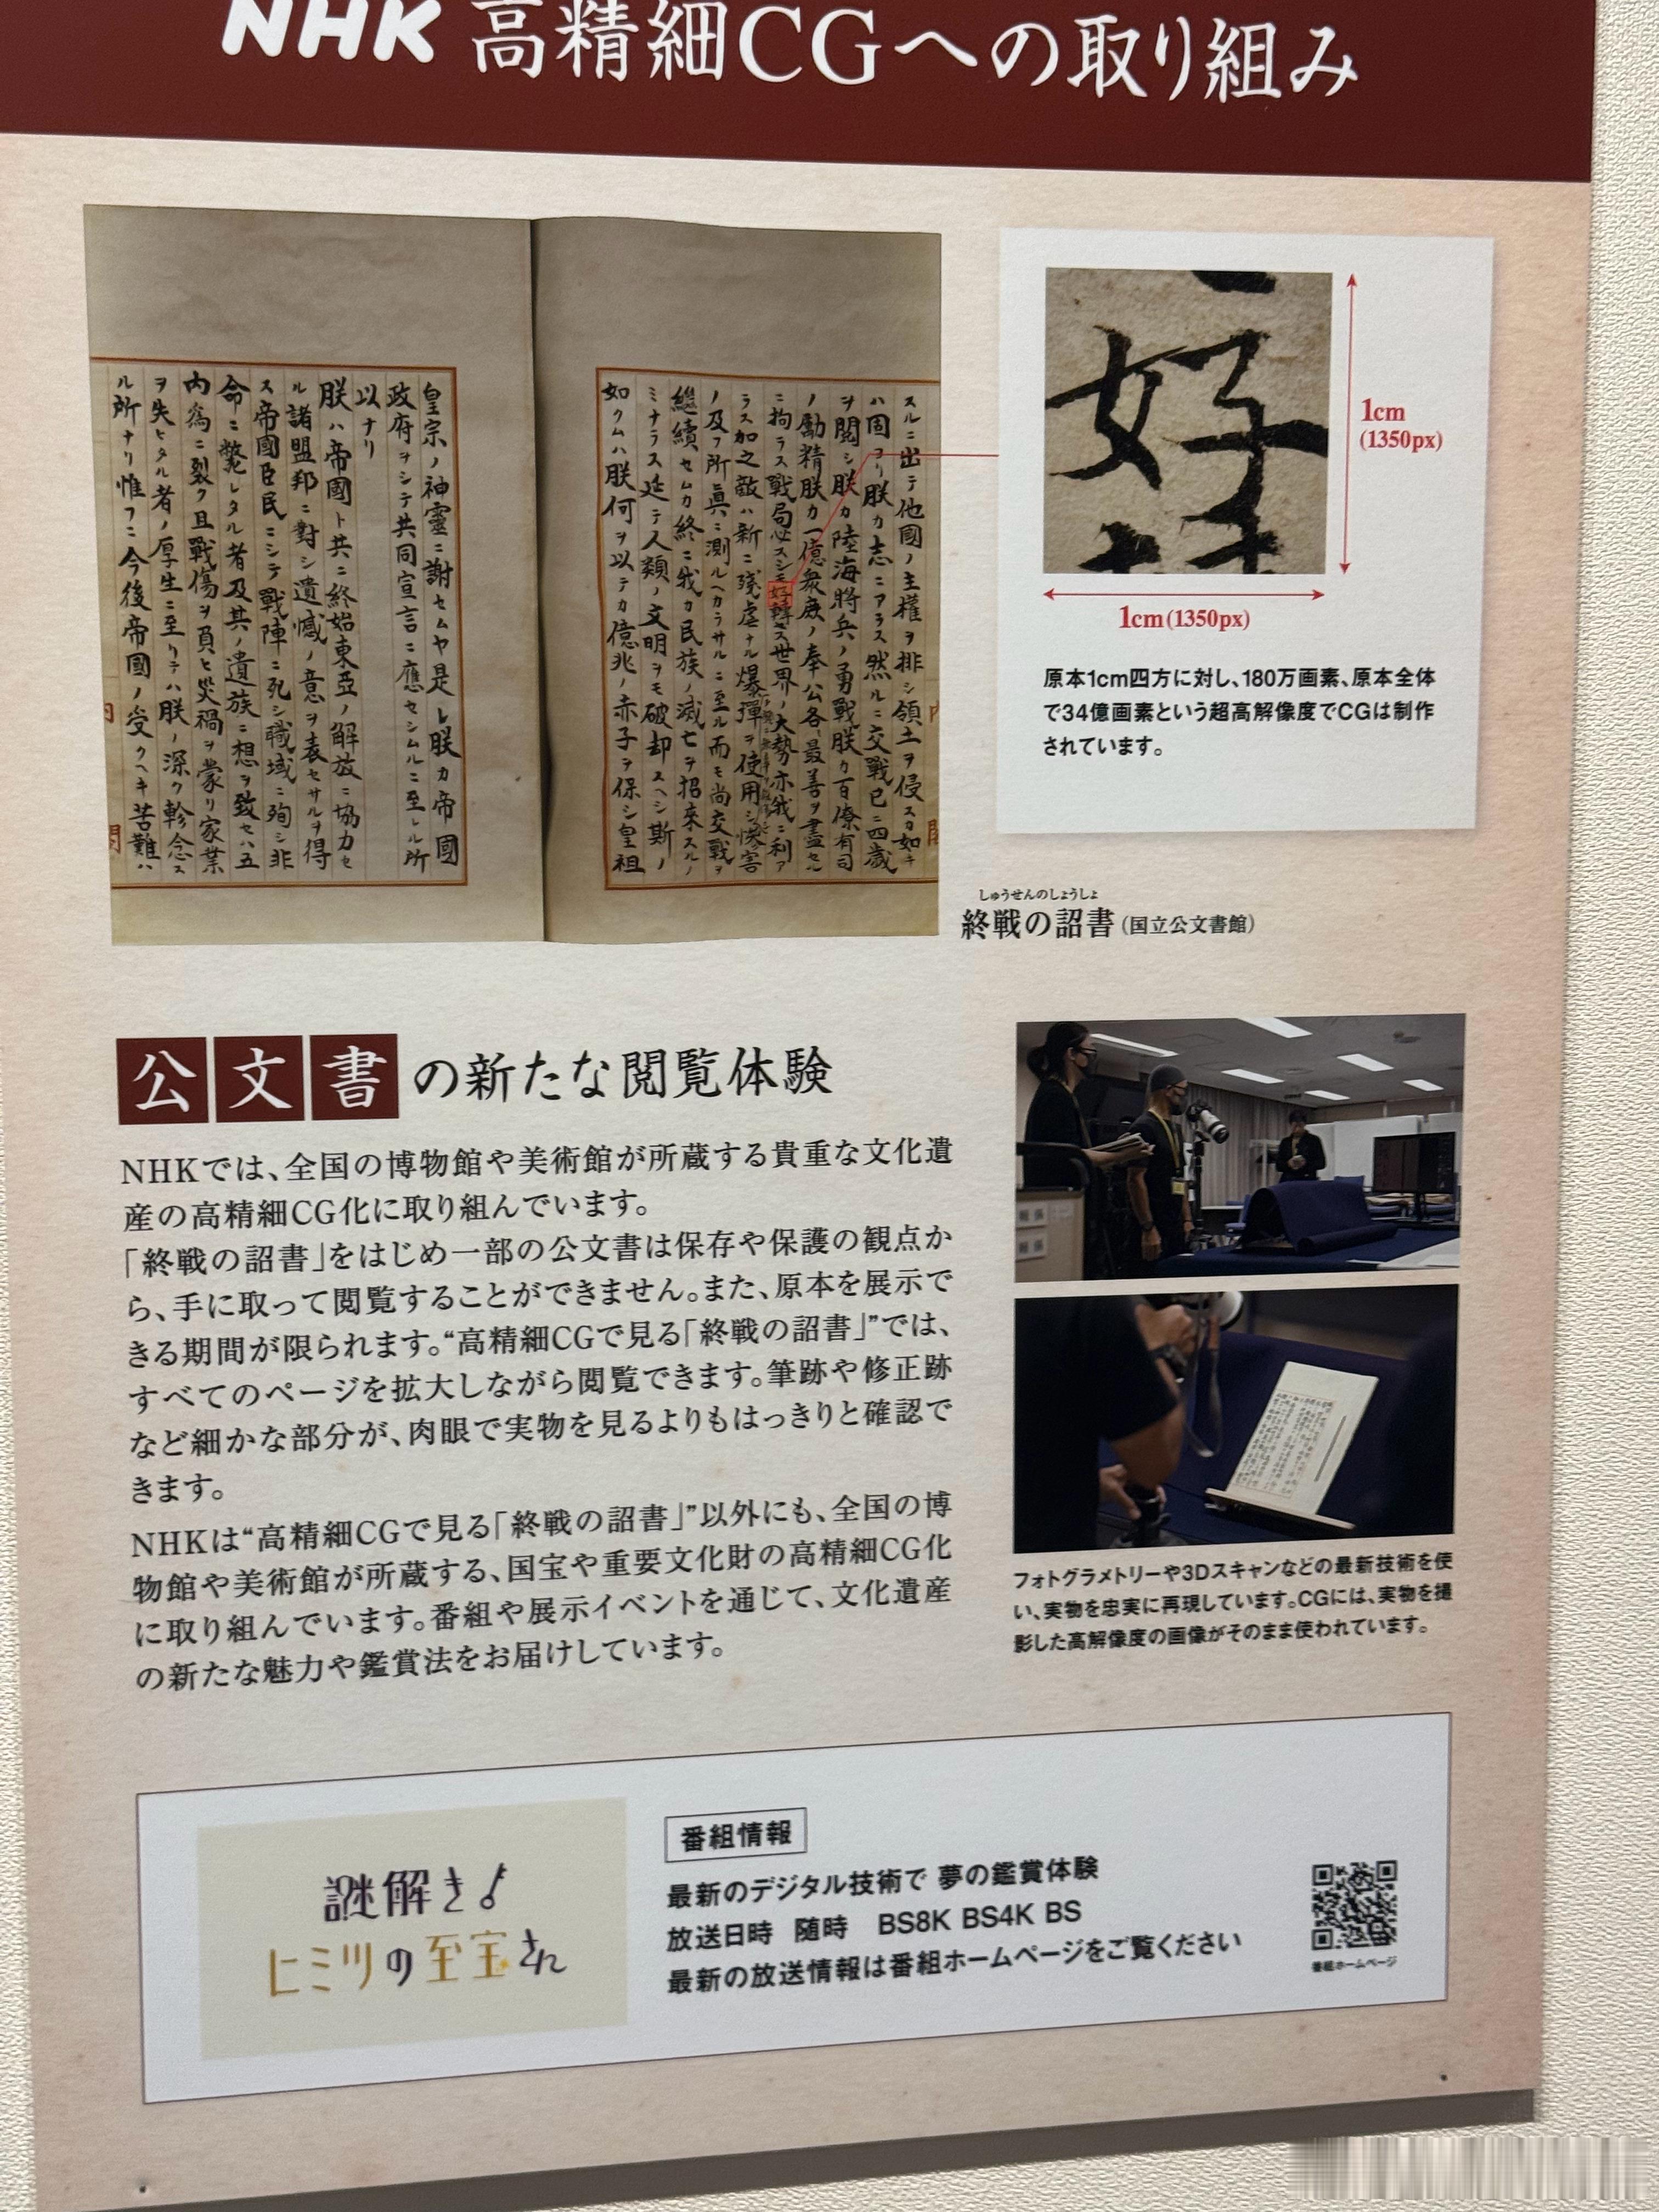 NHK 高精細CGへの取り組み
スルニ出テ他國ノ主權ヲ排シ領土ヲ侵スカ如キ
ハ固ヨリ朕カ志ニアラス然ルニ交戰已ニ四歲
ヲ閲シ朕カ陸海將兵ノ勇戰朕カ百僚有司
ノ勵精朕カ一億衆庶ノ奉公各最善ヲ盡セル
ニ拘ラス戰局必スシモ好轉セス世界ノ大勢亦我ニ利ア
ラス加之敵ハ新ニ殘虐ナル爆彈ヲ使用シ慘害
ノ及フ所眞ニ測ルヘカラサルニ至ル而モ尚交戰ヲ
繼續セムカ終ニ我カ民族ノ滅亡ヲ招來スルノ
ミナラス延テ人類ノ文明ヲモ破却スヘシ斯ノ
如クムハ朕何ヲ以テカ億兆ノ赤子ヲ保シ皇祖
皇宗ノ神靈ニ謝セムヤ是レ朕カ帝國
政府ヲシテ共同宣言ニ應セシムルニ至レル所
以ナリ
朕ハ帝國ト共ニ終始東亞ノ解放ニ協力セ
ル諸盟邦ニ對シ遺憾ノ意ヲ表セサルヲ得
ス帝國臣民ニシテ戰陣ニ死シ職域ニ殉シ非
命ニ斃レタル者及其ノ遺族ニ想ヲ致セハ五
內爲ニ裂ク且戰傷ヲ負ヒ災禍ヲ蒙リ家業
ヲ失ヒタル者ノ厚生ニ至リテハ朕ノ深ク軫念ス
ル所ナリ惟フニ今後帝國ノ受クヘキ苦難ハ
好
1cm
(1350px)
1cm(1350px)
原本1cm四方に対し、180万画素、原本全体
で34億画素という超高解像度でCGは制作
されています。
しゅうせんのしょうしょ
終戦の詔書(国立公文書館)
公文書の新たな閲覧体験
NHKでは、全国の博物館や美術館が所蔵する貴重な文化遺
産の高精細CG化に取り組んでいます。
「終戦の詔書」をはじめ一部の公文書は保存や保護の観点か
ら、手に取って閲覧することができません。また、原本を展示で
きる期間が限られます。“高精細CGで見る「終戦の詔書」”では、
すべてのページを拡大しながら閲覧できます。筆跡や修正跡
など細かな部分が、肉眼で実物を見るよりもはっきりと確認で
きます。
NHKは“高精細CGで見る「終戦の詔書」”以外にも、全国の博
物館や美術館が所蔵する、国宝や重要文化財の高精細CG化
に取り組んでいます。番組や展示イベントを通じて、文化遺産
の新たな魅力や鑑賞法をお届けしています。
フォトグラメトリーや3Dスキャンなどの最新技術を使
い、実物を忠実に再現しています。CGには、実物を撮
影した高解像度の画像がそのまま使われています。
謎解き!
ヒミツの至宝さん
番組情報
最新のデジタル技術で 夢の鑑賞体験
放送日時 随時 BS8K BS4K BS
最新の放送情報は番組ホームページをご覧ください
番組ホームページ